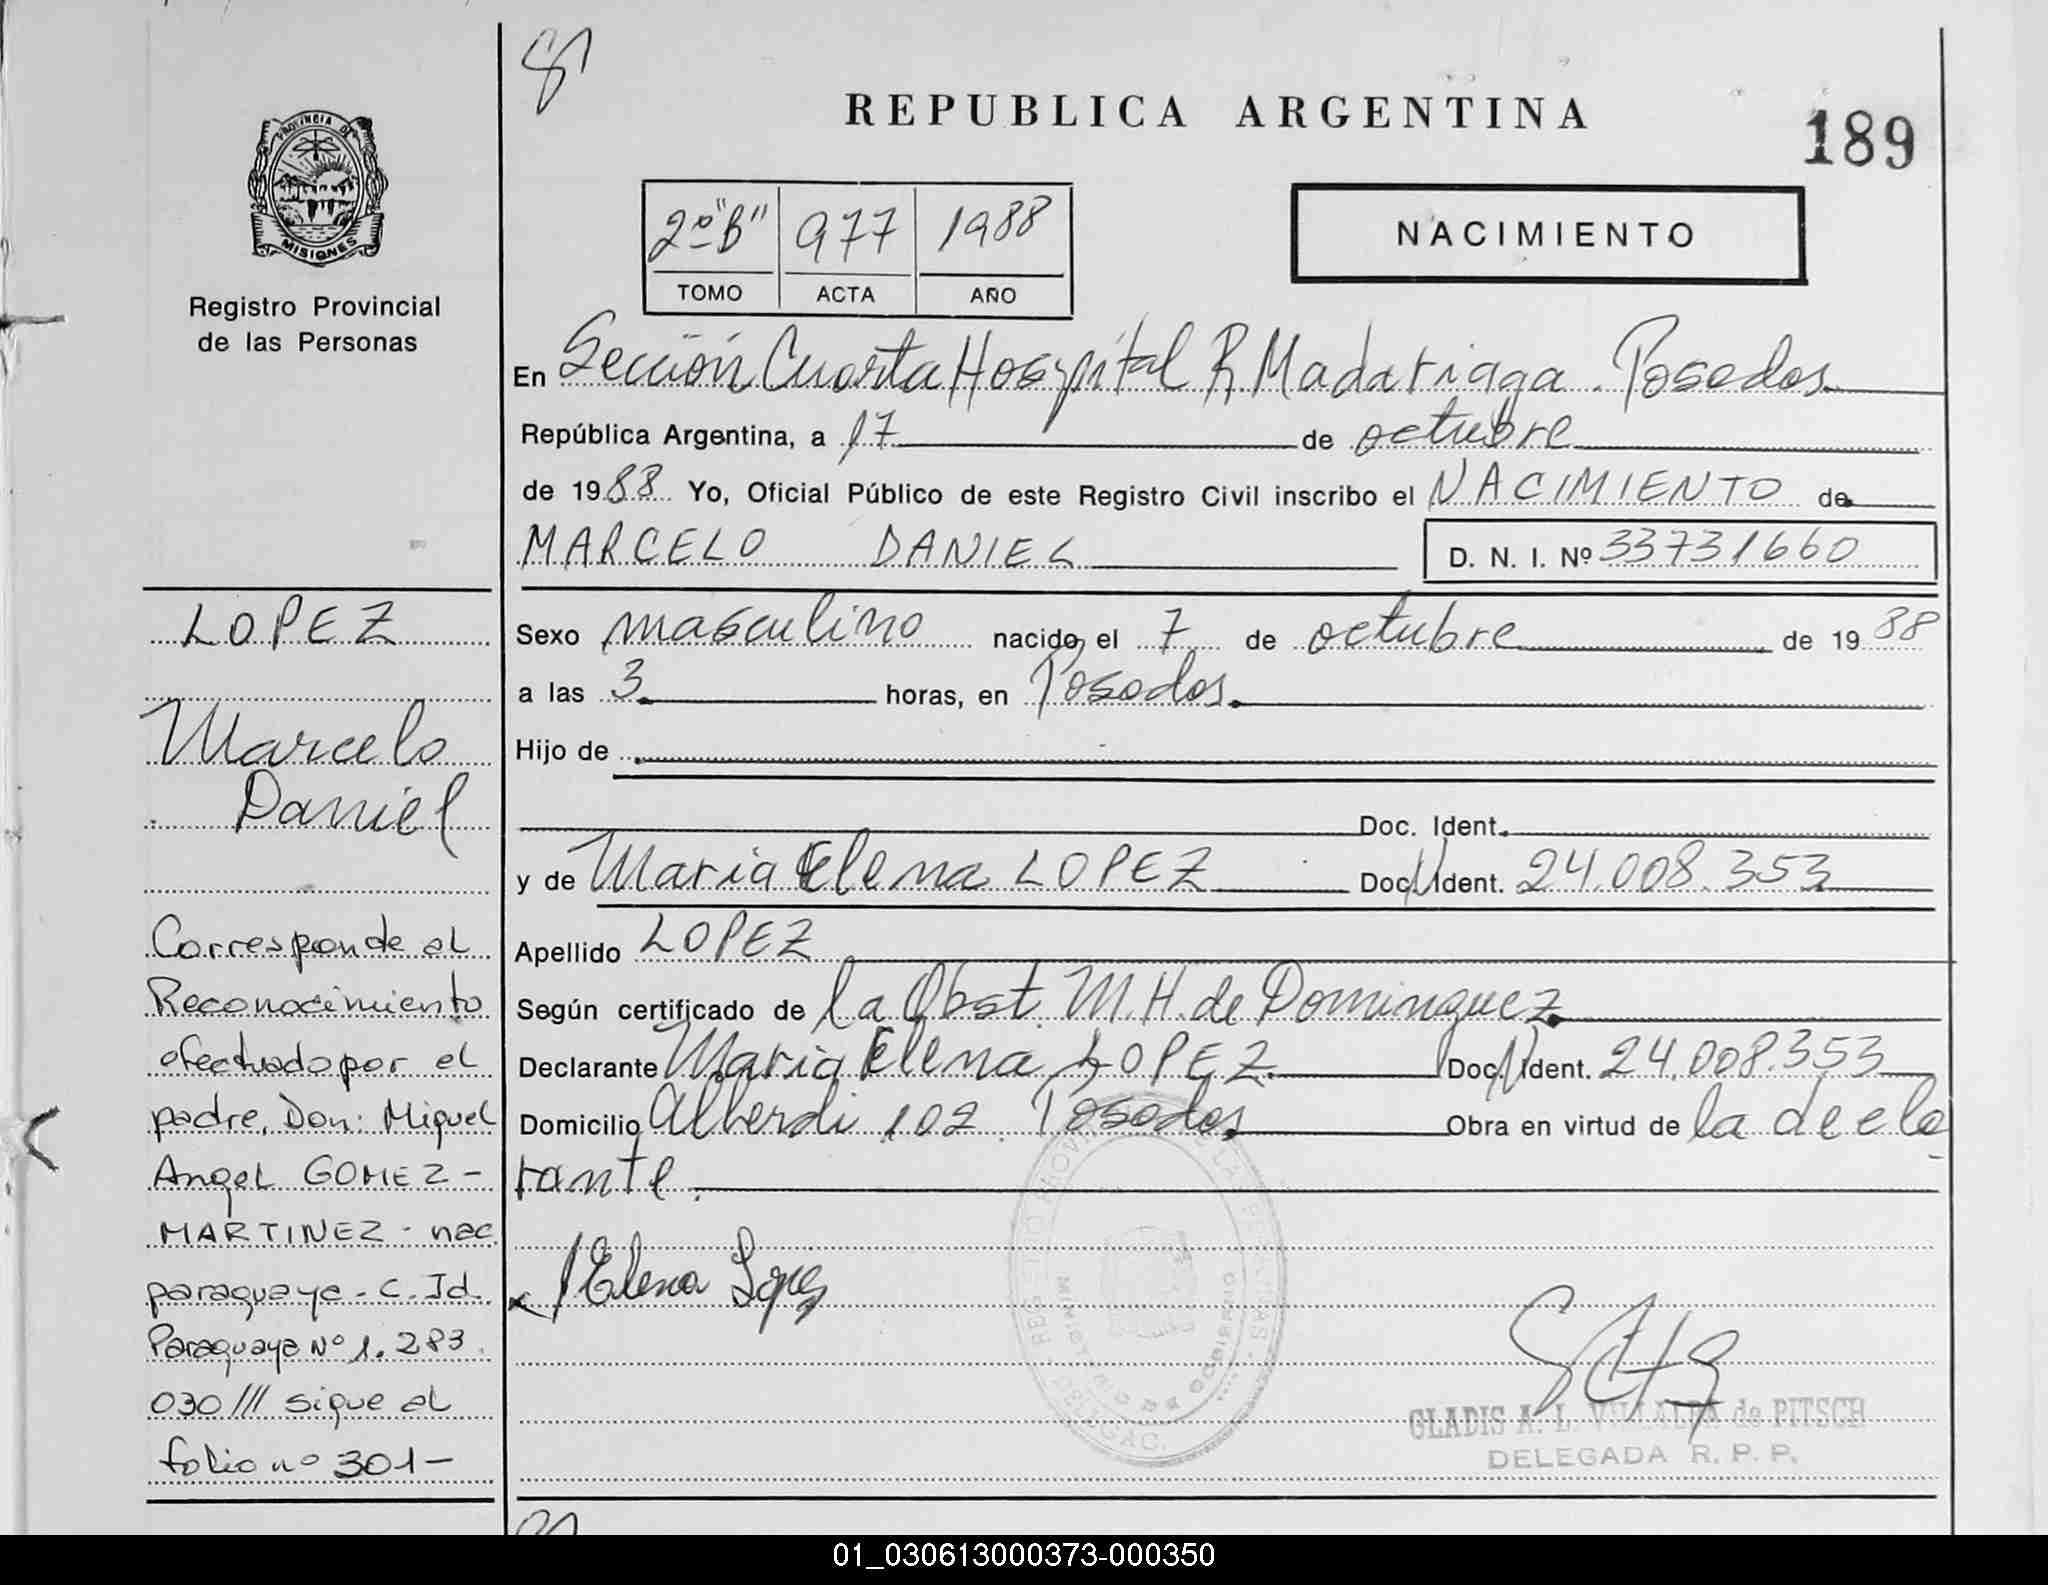 REPUBLICA ARGENTINA
189
PROVINCIA DE
MISIONES
Registro Provincial
de las Personas
2º "B" 977 1988
TOMO ACTA AÑO
NACIMIENTO
En Sección Cuarta Hospital R Madariaga. Posadas
República Argentina, a 17 de octubre
de 1988 Yo, Oficial Público de este Registro Civil inscribo el NACIMIENTO de
MARCELO DANIEL D. N. I. Nº 33731660
Sexo masculino nacido el 7 de octubre de 1988
a las 3 horas, en Posadas.
Hijo de
Doc. Ident.
y de Maria Elena LOPEZ Doc. Ident. 24.008.353
Apellido LOPEZ
Según certificado de la Obst. M.H. de Dominguez
Declarante Maria Elena LOPEZ Doc. Ident. 24.008.353
Domicilio Alberdi 102 Posadas Obra en virtud de la decla
rante.
Elena Lopez
GLADIS A. L. VILLALBA de PITSCH
DELEGADA R. P. P.
LOPEZ
Marcelo
Daniel
Corresponde al
Reconocimiento
efectuado por el
padre, Don: Miguel
Angel GOMEZ -
MARTINEZ - nac.
paraguaya - C. Id.
Paraguaya Nº 1.283.
030 /// sigue al
folio nº 301 -
01_030613000373-000350